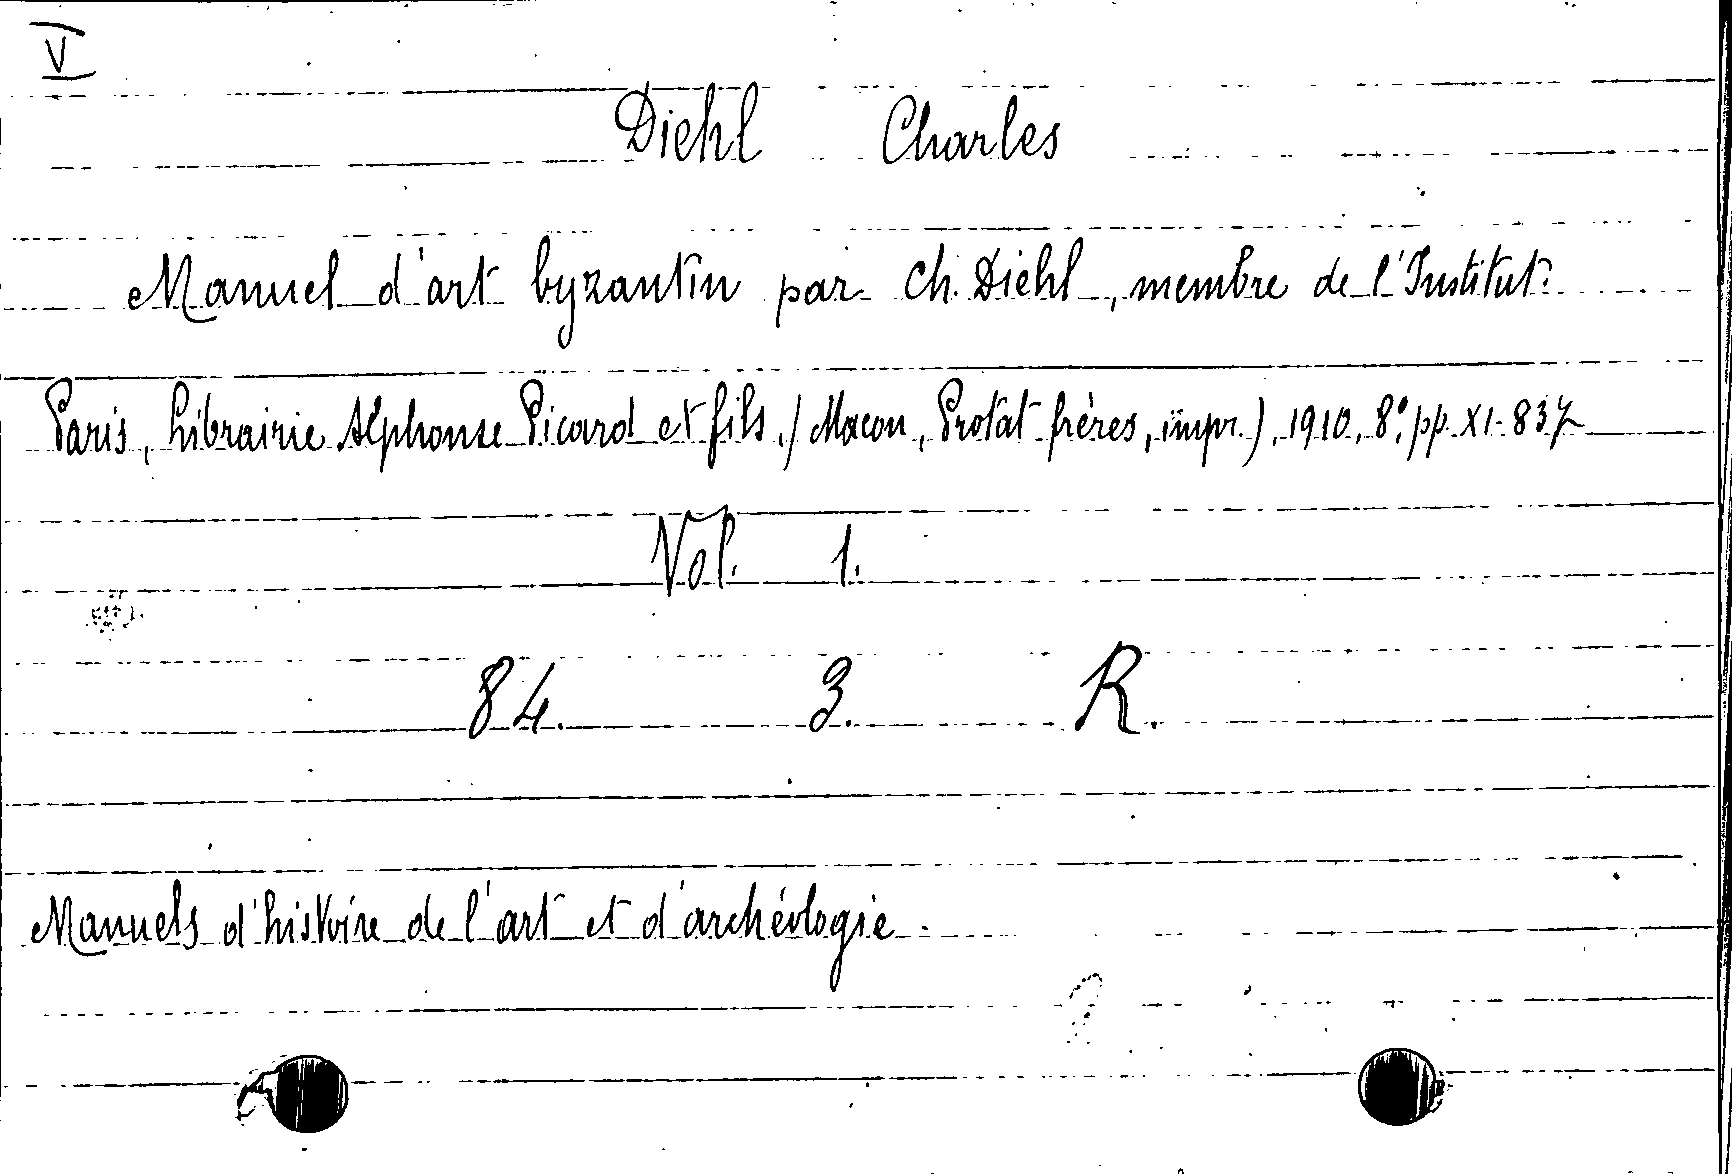 V
Diehl Charles
Manuel d'art byzantin par Ch. Diehl, membre de l'Institut.
Paris, Librairie Alphonse Picard et fils, (Macon, Protat frères, impr.), 1910, 8°, pp. XI-837
Vol. 1.
84. 3. R.
Manuels d'histoire de l'art et d'archéologie.